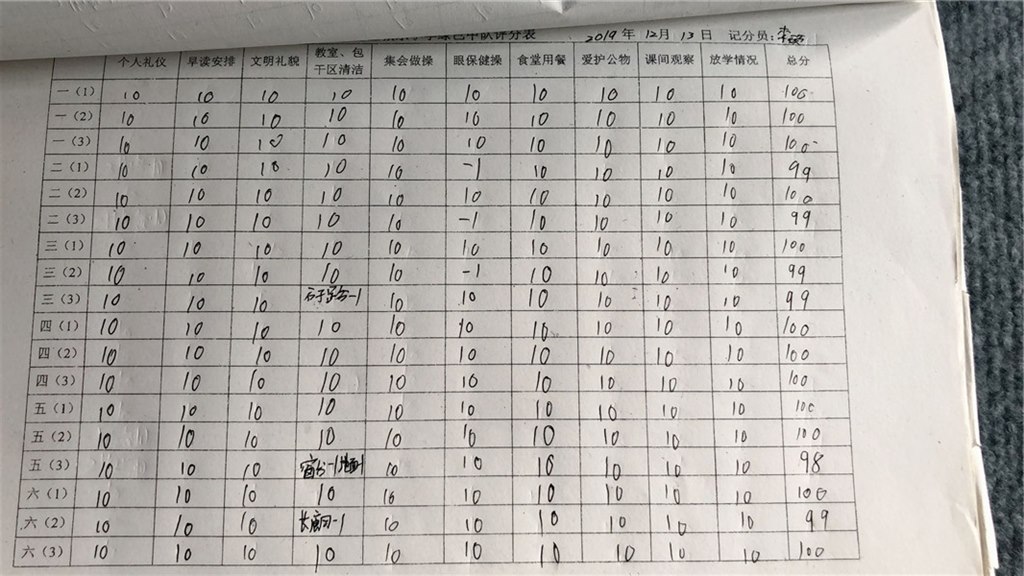 绿色中队评分表 2019年12月13日 记分员:
个人礼仪 早读安排 文明礼貌 教室、包干区清洁 集会做操 眼保健操 食堂用餐 爱护公物 课间观察 放学情况 总分
一（1） 10 10 10 10 10 10 10 10 10 10 100
一（2） 10 10 10 10 10 10 10 10 10 10 100
一（3） 10 10 10 10 10 10 10 10 10 10 100
二（1） 10 10 10 10 10 -1 10 10 10 10 99
二（2） 10 10 10 10 10 10 10 10 10 10 100
二（3） 10 10 10 10 10 -1 10 10 10 10 99
三（1） 10 10 10 10 10 10 10 10 10 10 100
三（2） 10 10 10 10 10 -1 10 10 10 10 99
三（3） 10 10 10 -1 10 10 10 10 10 10 99
四（1） 10 10 10 10 10 10 10 10 10 10 100
四（2） 10 10 10 10 10 10 10 10 10 10 100
四（3） 10 10 10 10 10 10 10 10 10 10 100
五（1） 10 10 10 10 10 10 10 10 10 10 100
五（2） 10 10 10 10 10 10 10 10 10 10 100
五（3） 10 10 10 窗台-1 10 10 10 10 10 10 98
六（1） 10 10 10 10 10 10 10 10 10 10 100
六（2） 10 10 10 -1 10 10 10 10 10 10 99
六（3） 10 10 10 10 10 10 10 10 10 10 100